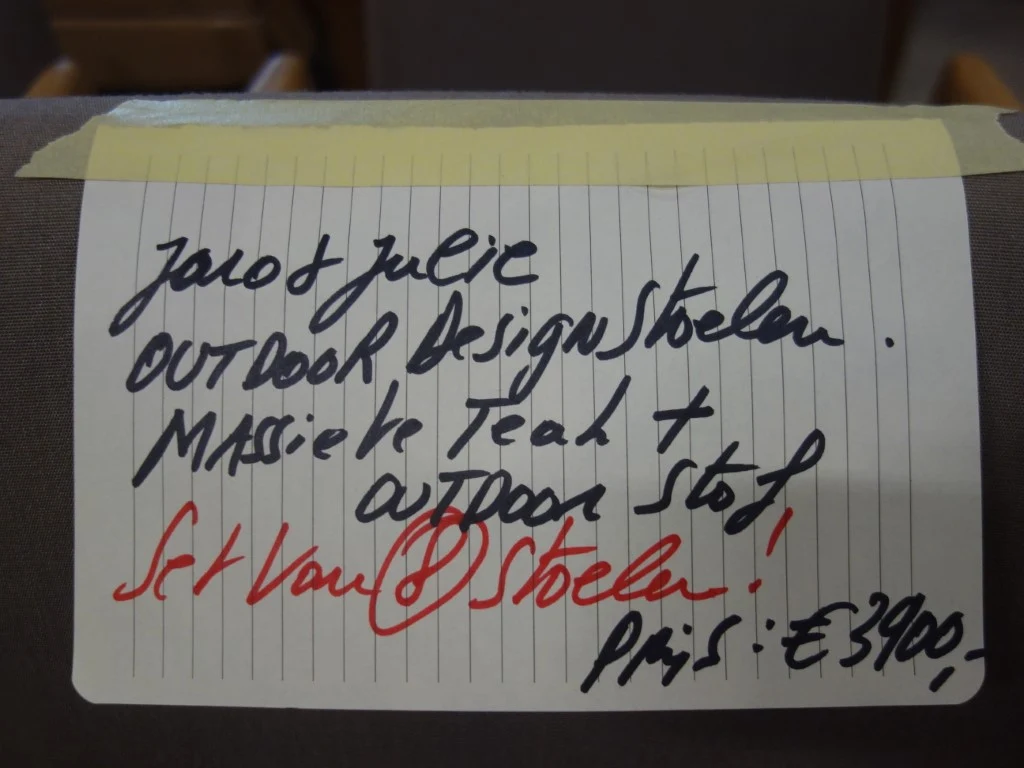 Jaro & Julie
OUTDOOR Design Stoelen.
MAssieve Teak +
OUTDOOR Stof
Set Van (8) Stoelen!
PRijs: € 3900,-